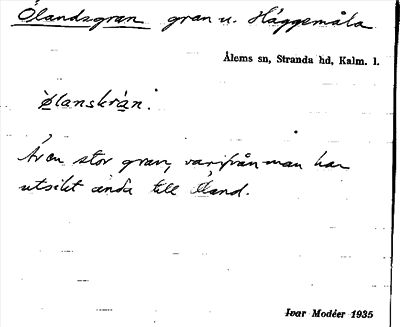 Ölandsgran gran u. Häggemåla
Ålems sn, Stranda hd, Kalm. l.
Ölanskràn.
Är en stor gran, varifrån man har
utsikt ända till Öland.
Ivar Modéer 1935